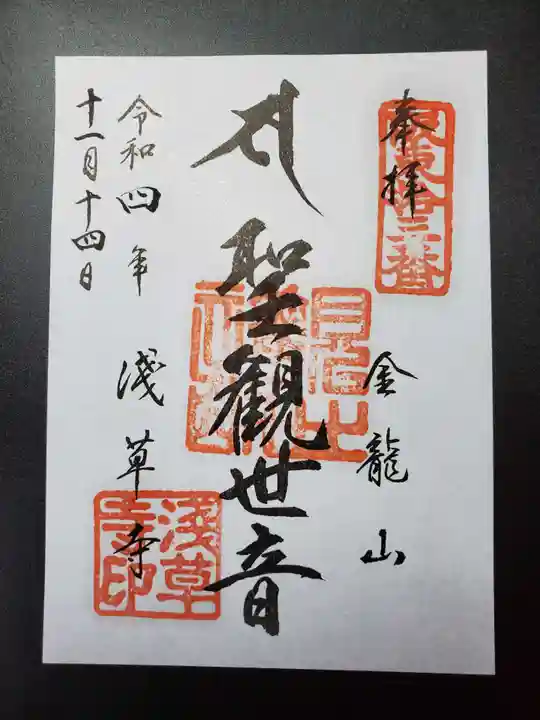 奉拝
坂東拾三番
金龍山
𑖭
聖観世音
浅草寺
浅草寺印
令和四年
十一月十四日